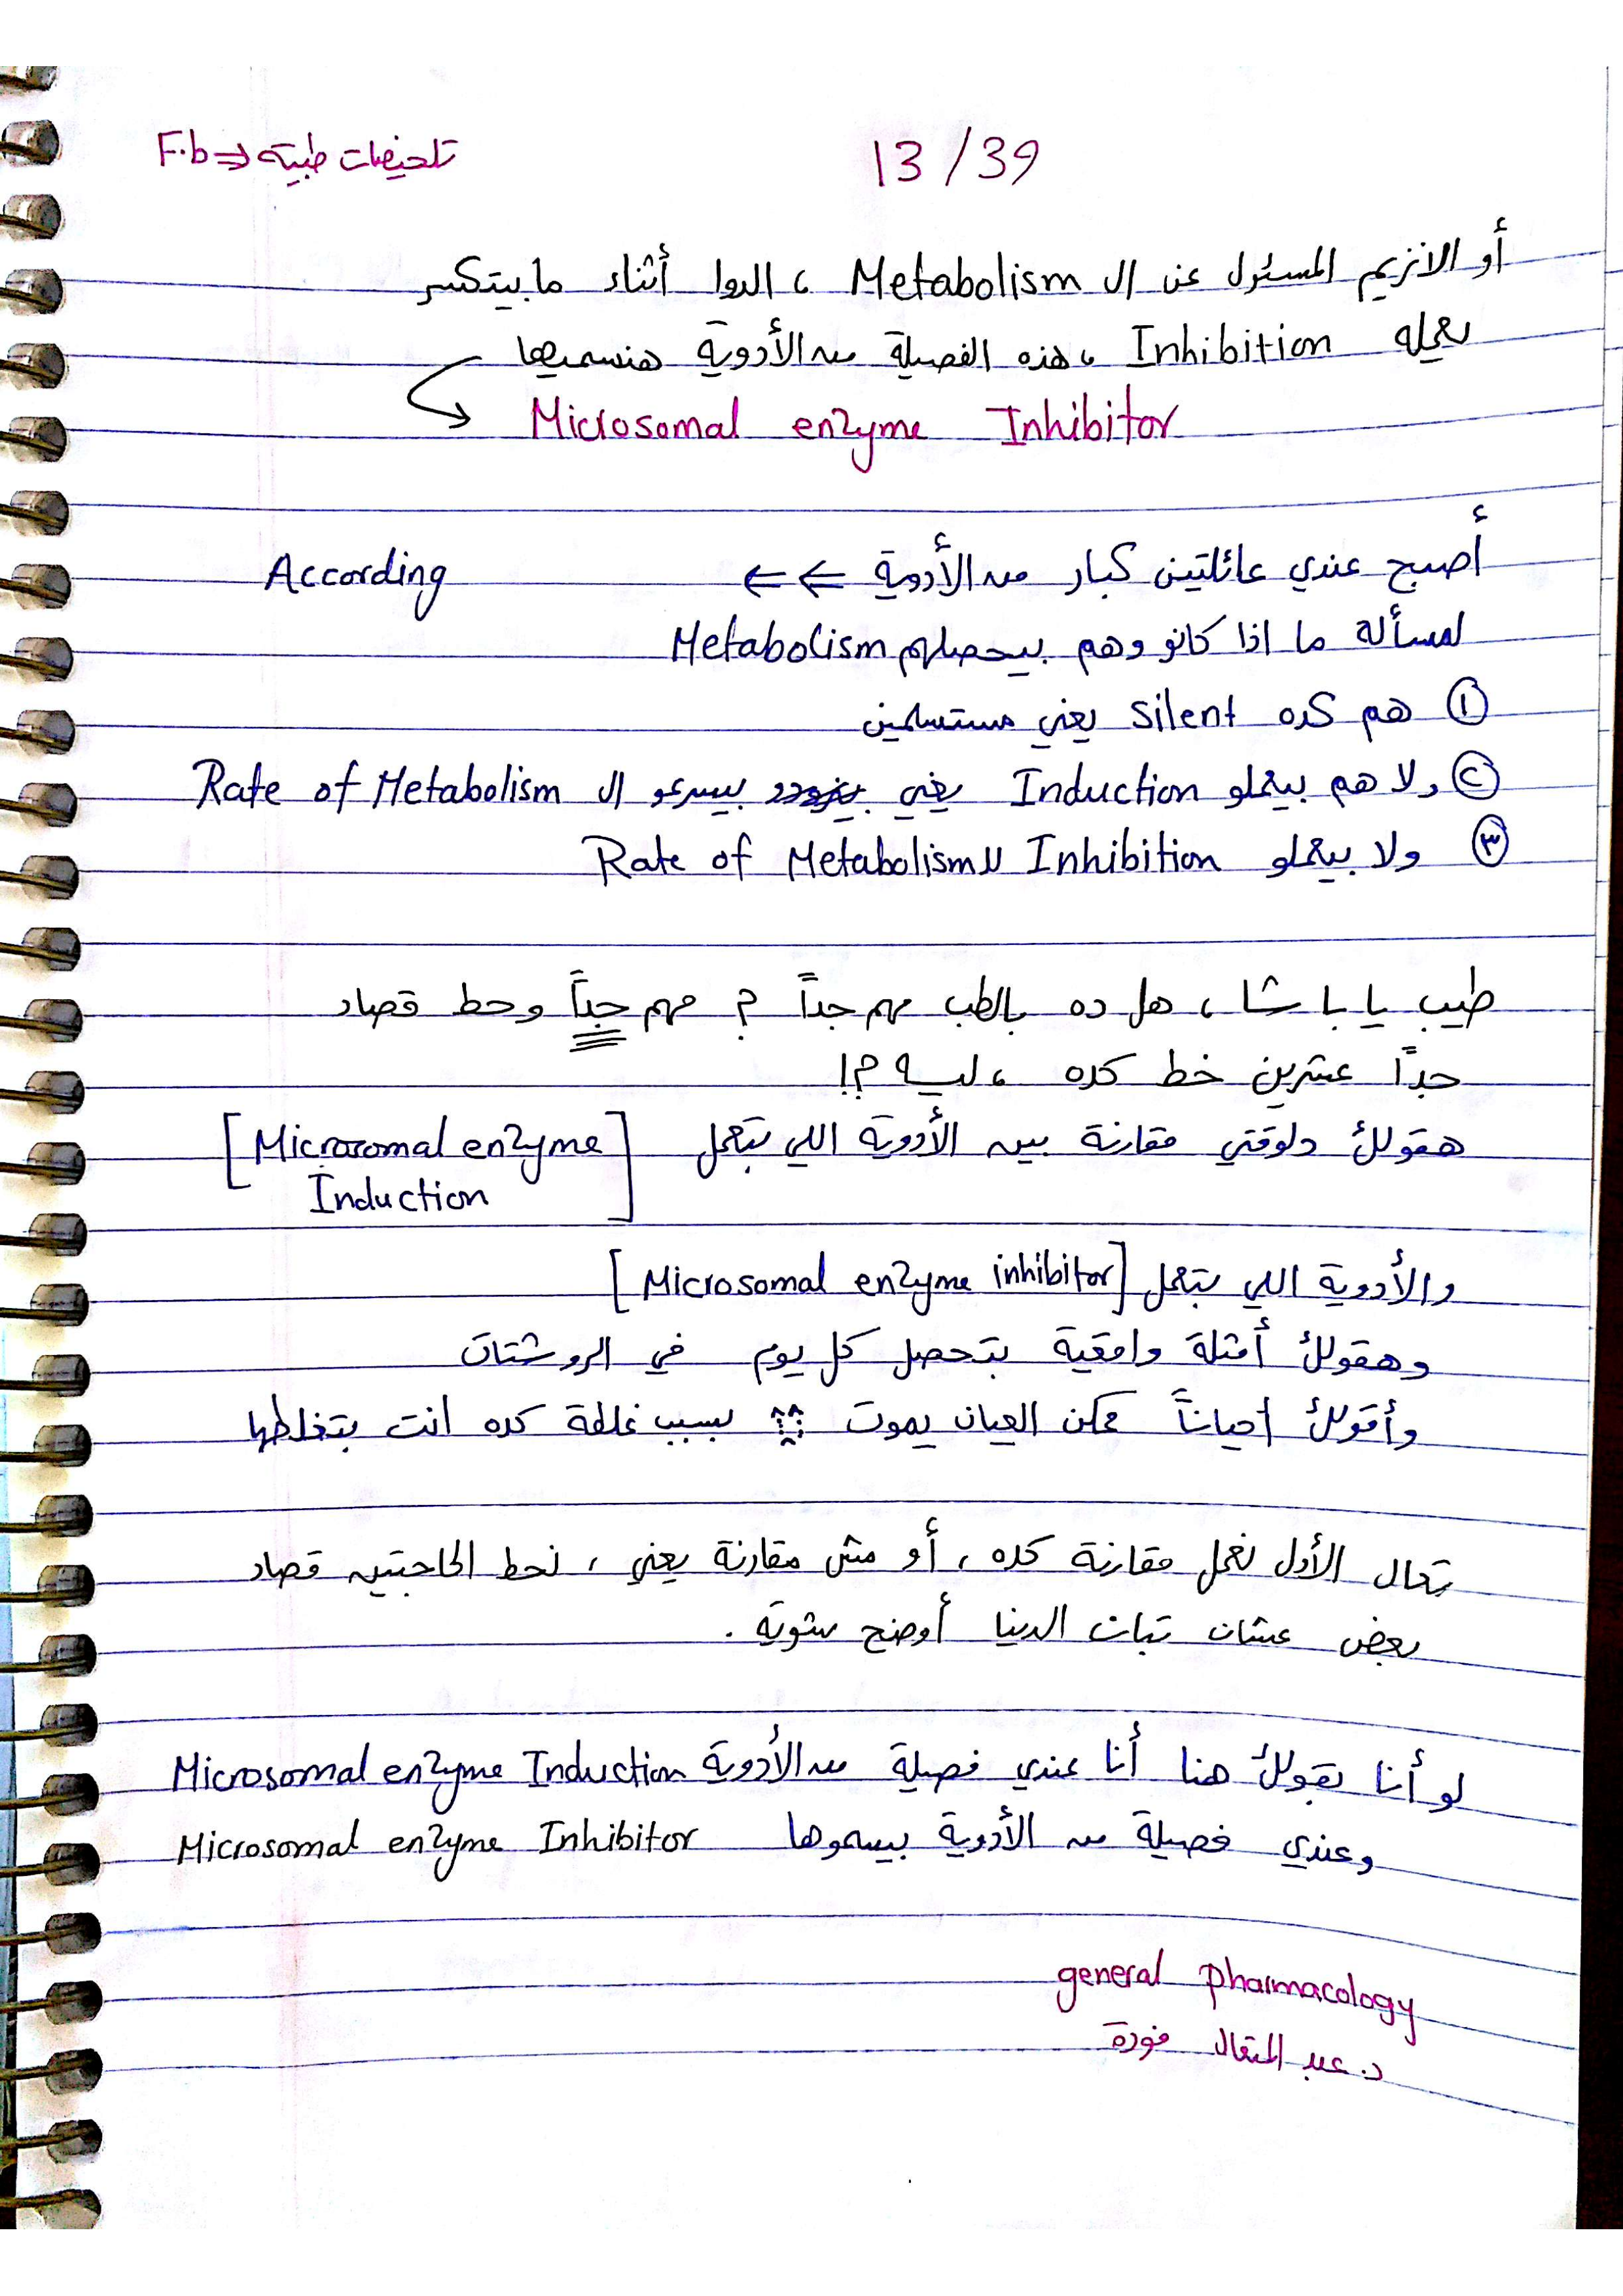 13/39
تلخيصات طبية <= F.b
أو الانزيم المسئول عن ال Metabolism ، الدوا أثناء ما بيتكسر
يعمله Inhibition ، هذه الفصيلة من الأدوية هنسميها
Microsomal enzyme Inhibitor
أصبح عندي عائلتين كبار من الأدوية ⇐⇐ According
لمسألة ما اذا كانو وهم بيحصلهم Metabolism
① هم كده silent يعني مستسلمين
② ولا هم بيعملو Induction يعني بيسرعو ال Rate of Metabolism
③ ولا بيعملو Inhibition لل Rate of Metabolism
طيب يا باشا ، هل ده بالطب مهم جداً ؟ مهم جداً وحط قصاد
جداً عشرين خط كده ، ليه ؟!
هقولك دلوقتي مقارنة بين الأدوية اللي بتعمل [Microsomal enzyme
Induction]
والأدوية اللي بتعمل [Microsomal enzyme inhibitor]
وهقولك أمثلة واقعية بتحصل كل يوم في الروشتات
وأقولك أحياناً ممكن العيان يموت !! بسبب غلطة كده انت بتغلطها
تعال الأول نعمل مقارنة كده ، أو مش مقارنة يعني ، نحط الحاجتين قصاد
بعض عشان تبات الدنيا أوضح شوية .
لو أنا بقولك هنا أنا عندي فصيلة من الأدوية Microsomal enzyme Induction
وعندي فصيلة من الأدوية بيسموها Microsomal enzyme Inhibitor
general pharmacology
د. عبد المتعال فودة